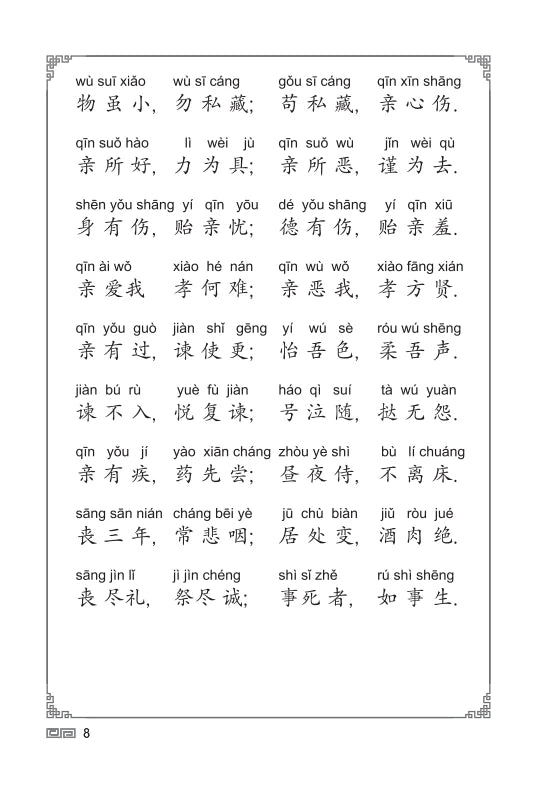 wù suī xiǎo wù sī cáng gǒu sī cáng qīn xīn shāng
物虽小, 勿私藏; 苟私藏, 亲心伤.
qīn suǒ hào lì wèi jù qīn suǒ wù jǐn wèi qù
亲所好, 力为具; 亲所恶, 谨为去.
shēn yǒu shāng yí qīn yōu dé yǒu shāng yí qīn xiū
身有伤, 贻亲忧; 德有伤, 贻亲羞.
qīn ài wǒ xiào hé nán qīn wù wǒ xiào fāng xián
亲爱我 孝何难; 亲恶我, 孝方贤.
qīn yǒu guò jiàn shǐ gēng yí wú sè róu wú shēng
亲有过, 谏使更; 怡吾色, 柔吾声.
jiàn bú rù yuè fù jiàn háo qì suí tà wú yuàn
谏不入, 悦复谏; 号泣随, 挞无怨.
qīn yǒu jí yào xiān cháng zhòu yè shì bù lí chuáng
亲有疾, 药先尝; 昼夜侍, 不离床.
sāng sān nián cháng bēi yè jū chù biàn jiǔ ròu jué
丧三年, 常悲咽; 居处变, 酒肉绝.
sāng jìn lǐ jì jìn chéng shì sǐ zhě rú shì shēng
丧尽礼, 祭尽诚; 事死者, 如事生.
8